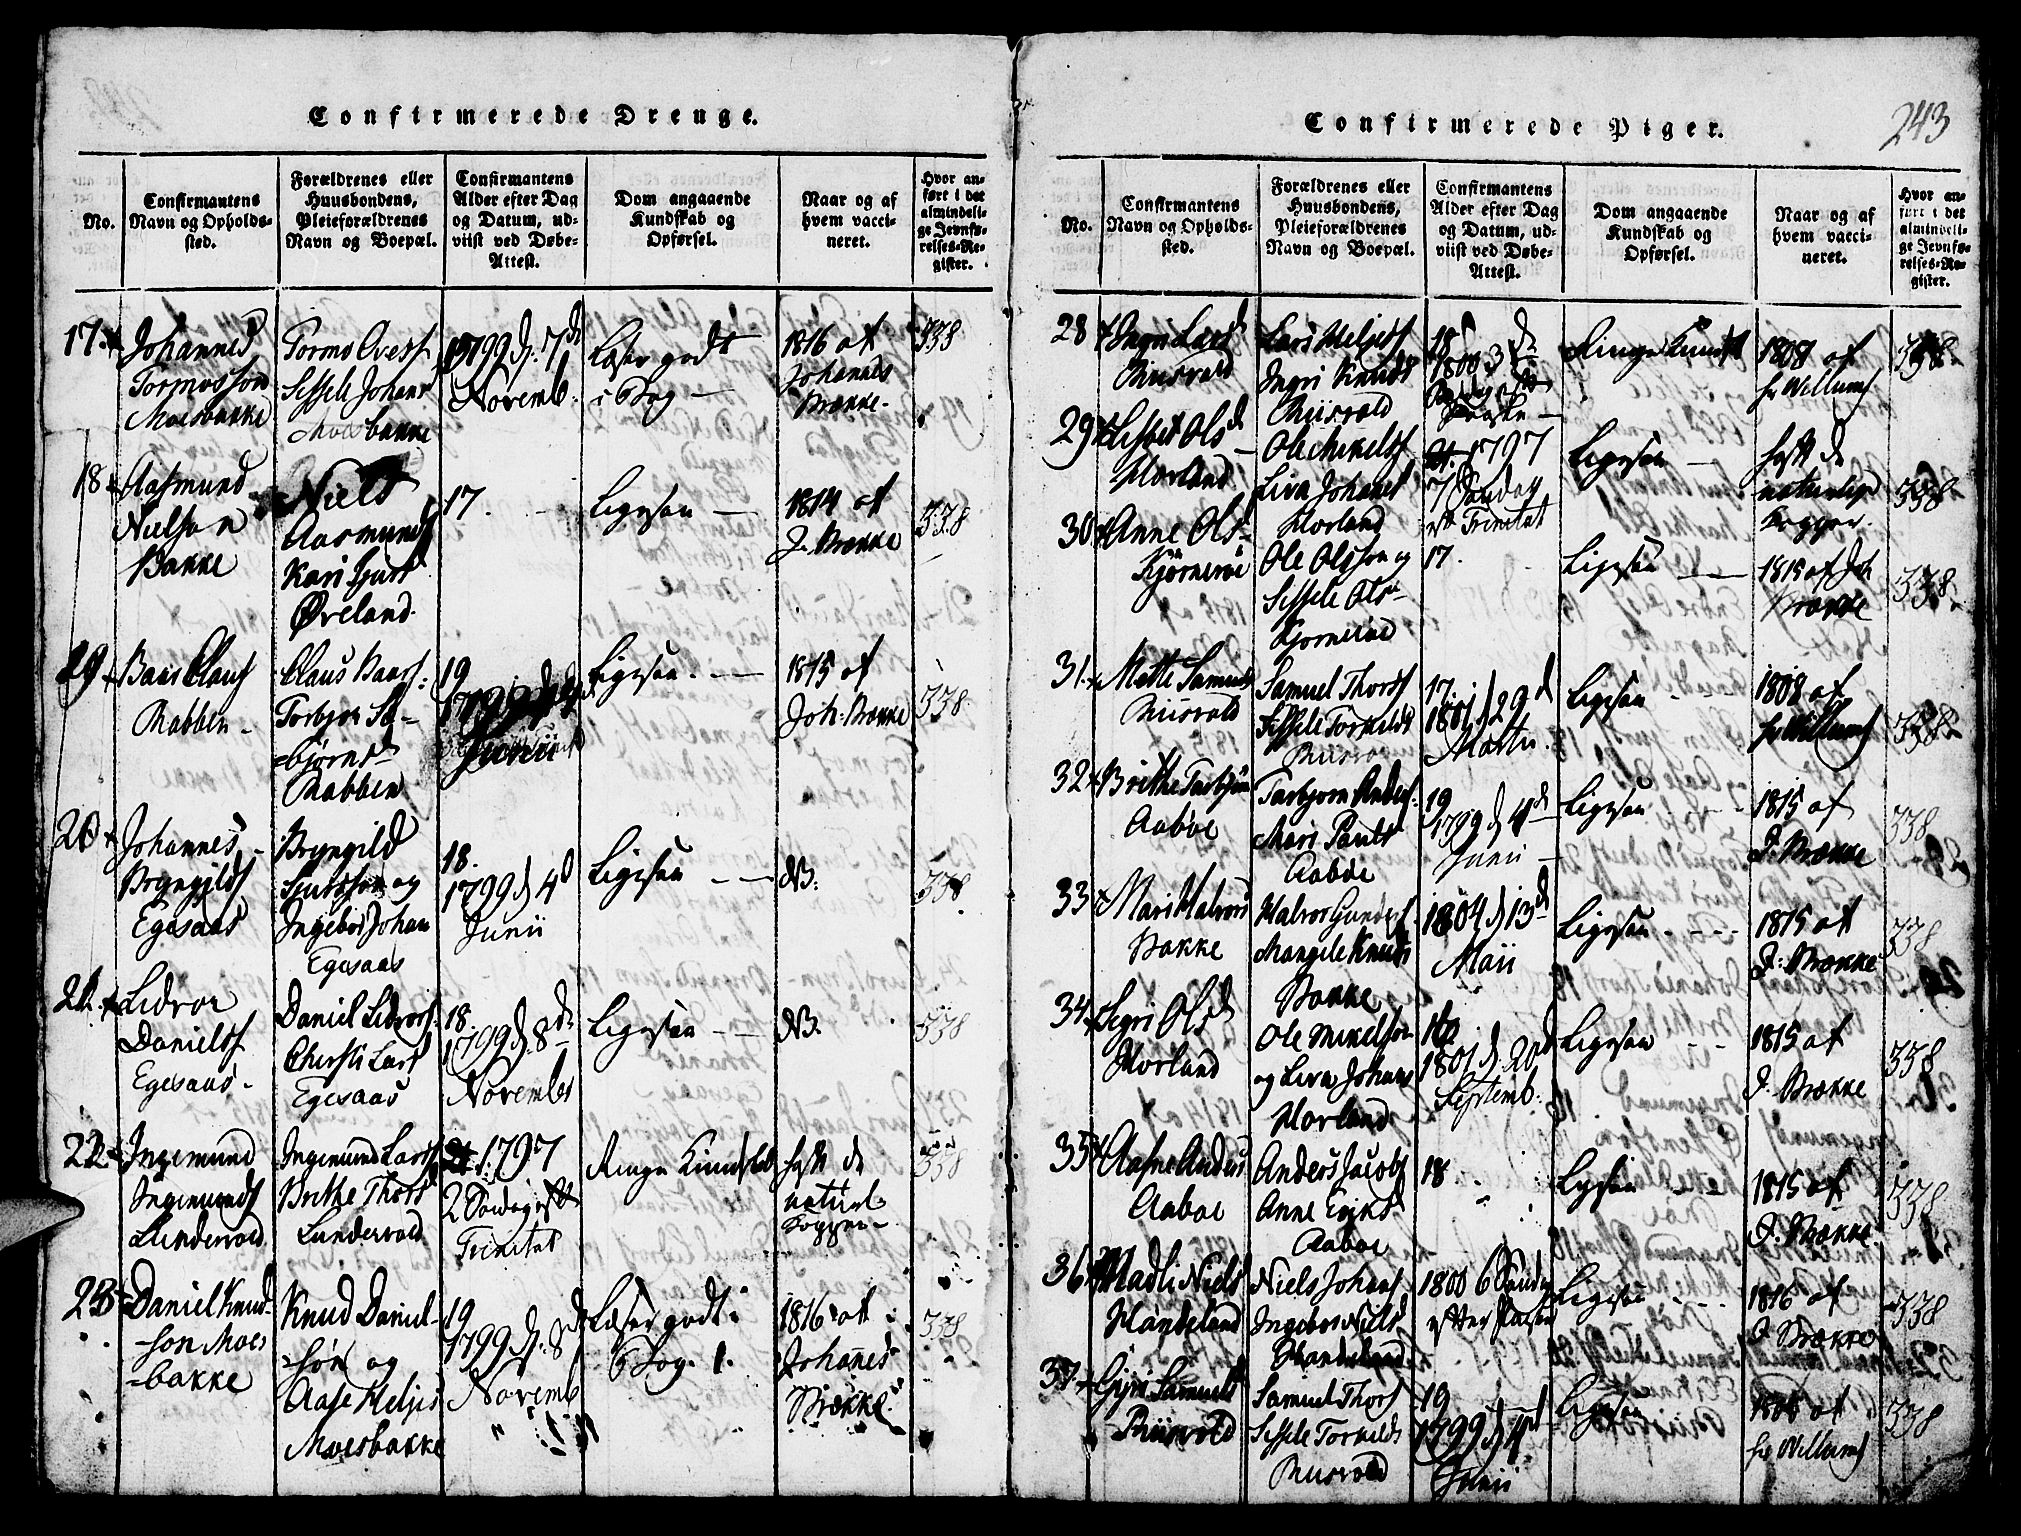 Confirmerede Drenge.
No.
Confirmantens
Navn og Opholds-
sted.
Forældrenes eller
Huusbondens,
Pleieforældrenes
Navn og Boepæl.
Confirmantens
Alder efter Dag
og Datum, ud-
viist ved Døbe-
Attest.
Dom angaaende
Kundskab og
Opførsel.
Naar og af
hvem vacci-
neret.
Hvor an-
ført i det
almindeli-
ge Jevnfø-
relses-Re-
gister.
17.
Johannes
Tormosson
Moesbakke
Tormo Oves
Sissele Johans
Moesbakke
1799 d. 7de
Novemb.
Læser godt
i Bog
1816 af
Johannes
Brække.
338
18
Aasmund
Nielson
Bakke
Niels
Aasmunds
Kari Sjurs
Øveland
17.
Ligesaa
1814 af
J. Brække
338
Baar Claus
Rabben
Claus Baars
Torbjør
bjørns
Rabben
19
Junii
Ligesaa
1815 af
Joh. Brække
338
20
Johannes
Bryngilds
Egesaas
Bryngild
Sjursson og
Ingebor Johan
Egesaas
18.
1799 d. 4d
Junii
Ligesaa
NB.
338
21
Lidvor
Daniels
Egesaas
Daniel Lidvors
Chersti Lars
Egesaas
18
1799 d. 8de
November
Ligesaa
NB.
338
22
Ingemund
Ingemunds
Lundevold
Ingemund Lars
Brithe Thors
Lundevold
1797
2 Søndag eft
Trinitat
Ringe Kundskab
havt de
naturl
Kopper
338
23
Daniel Knud-
son Moes
bakke
Knud Daniel-
søn og
Aase Heljes
Moesbakke
19
1799 d. 8d
Novemb
Læser godt i
Bog.
1816 af
Johannes
Brække
338
243
Confirmerede Piger.
No.
Confirmantens
Navn og Opholds-
sted.
Forældrenes eller
Huusbondens,
Pleieforældrenes
Navn og Boepæl.
Confirmantens
Alder efter Dag
og Datum, ud-
viist ved Døbe-
Attest.
Dom angaaende
Kundskab og
Opførsel.
Naar og af
hvem vacci-
neret.
Hvor an-
ført i det
almindeli-
ge Jevnfø-
relses-Re-
gister.
28
Ingri Larsd
Riisvold
Lars Heljes
Ingri Knuds
Riisvold
18
1800 3de
Paaske
Ringe Kundsk
1808 af
hr Willums
338
29
Lisbet Olsd
Horland
Ole Mikels
Liva Johans
Horland
1797
7 Søndag
eft Trinitat
Ligesaa
havt de
naturlige
Kopper.
338
30
Anne Ols
Kjørneroe
Ole Olsson og
Sissele Ols
Kjørneroe
17.
Ligesaa
1815 af Joh
Brække
338
31.
Mette Samuels
Riisvold
Samuel Thors
Sissele Torkelds
Riisvo
17.
1801 d 29d
Martii
Ligesaa
1808 af
hr Willums
338
32
Brithe Torbjørn
Aaboe
Torbjørn Anders
Mari Pauls
Aaboe
19
1799 d 4d
Junii
Ligesaa
1815 af
J. Brække
338
33
Mari Halvors
Bakke
Halvor Gunders
Mangele Knuds
Bakke
1804 d 13d
Maii
Ligesaa
1815 af
J. Brække
338
34
Sigri Olsd
Horland
Ole Mikelson
og Liva Johans
Horland
16
1801 d. 20d
Septemb.
Ligesaa
1815 af
J. Brække
338
35
Aasne Anders
Aaboe
Anders Jacobs
Anne Eriks
Aaboe
18
Ligesaa
1815 af
J. Brække
338
36
Madli Niels
Handeland
Niels Johans
Ingebor Niels
Handeland
1800 6 Søndag
efter Paaske
Ligesaa
1816 af
J Brække
338
37
Gyri Samuels
Riisvold
Samuel Thors
Sissele Torkelds
Riisvold
19
1799 d. 4d
Junii
Ligesaa
1808 af
hr Willums
338